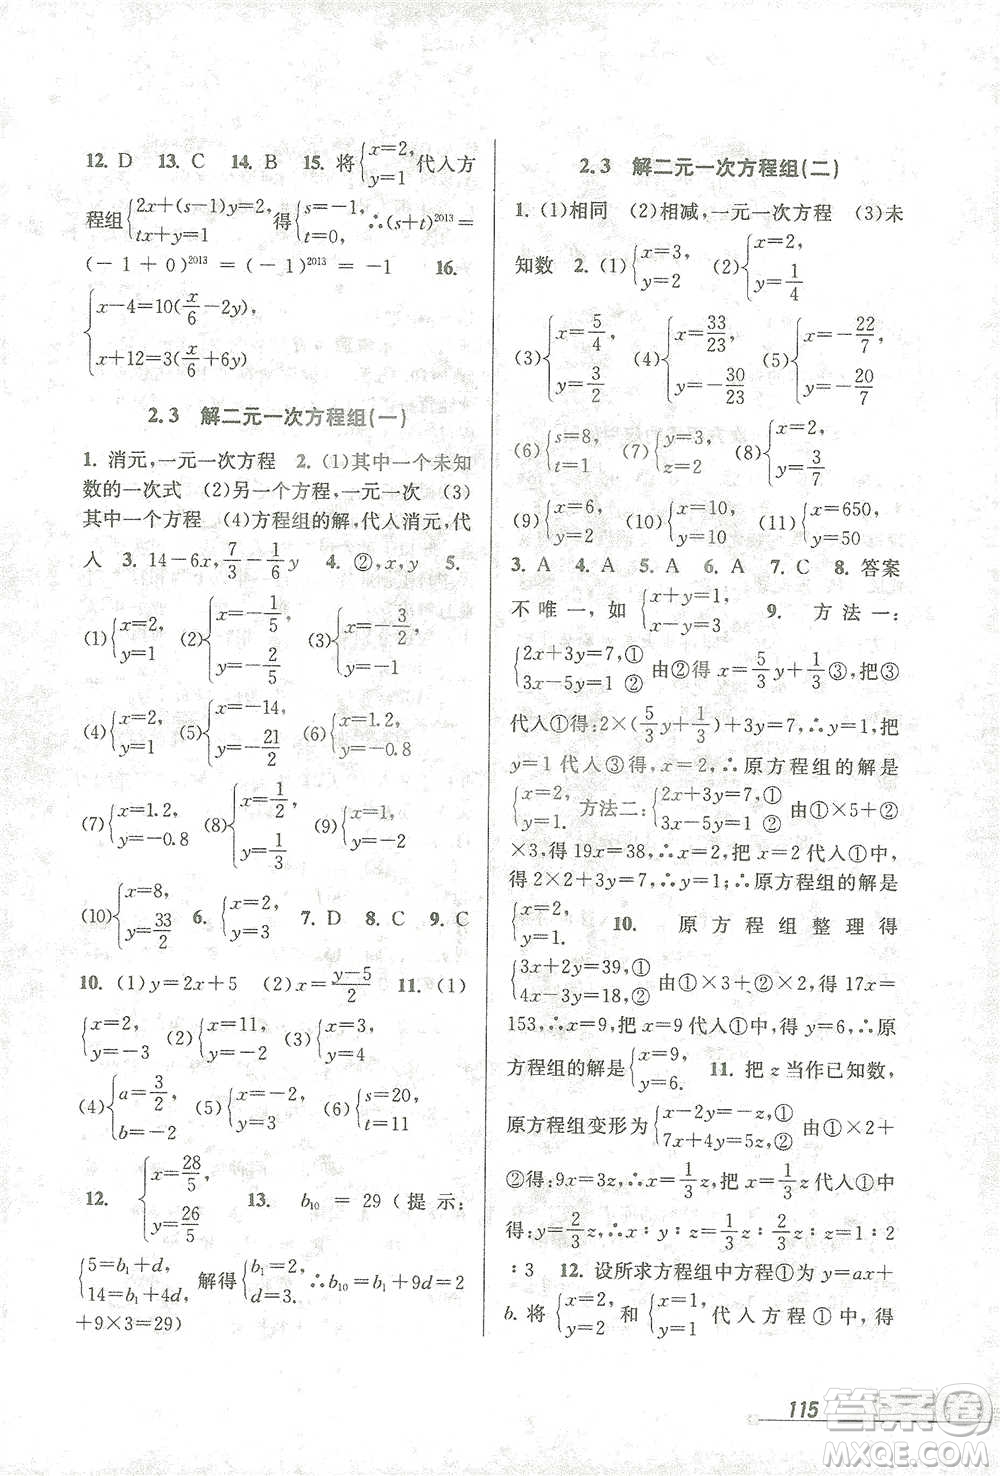 12. D 13. C 14. B 15. 将{x=2, y=1 代入方
程组{2x+(s-1)y=2, tx+y=1 得{s=-1, t=0, ∴(s+t)^2013
=(-1+0)^2013=(-1)^2013=-1 16.
{x-4=10(x/6-2y), x+12=3(x/6+6y)
2.3 解二元一次方程组(一)
1. 消元,一元一次方程 2. (1)其中一个未知
数的一次式 (2)另一个方程,一元一次 (3)
其中一个方程 (4)方程组的解,代入消元,代
入 3. 14-6x, 7/3-1/6y 4. ②,x,y 5.
(1){x=2, y=1 (2){x=-1/5, y=-2/5 (3){x=-3/2, y=-1
(4){x=2, y=1 (5){x=-14, y=-21/2 (6){x=1.2, y=-0.8
(7){x=1.2, y=-0.8 (8){x=1/2, y=1/3 (9){x=1, y=-2
(10){x=8, y=33/2 6. {x=2, y=3 7. D 8. C 9. C
10. (1)y=2x+5 (2)x=(y-5)/2 11. (1)
{x=2, y=-3 (2){x=11, y=-2 (3){x=1, y=4
(4){a=3/2, b=-2 (5){x=2, y=-1 (6){s=20, t=11
12. {x=28/5, y=26/5 13. b₁₀=29(提示:
{5=b₁+d, 14=b₁+4d, 解得{b₁=2, d=3. ∴b₁₀=b₁+9d=2
+9×3=29)
2.3 解二元一次方程组(二)
1. (1)相同 (2)相减,一元一次方程 (3)未
知数 2. (1){x=3, y=2 (2){x=2, y=1/4
(3){x=5/4, y=3/2 (4){x=33/23, y=-30/23 (5){x=-22/7, y=-20/7
(6){s=8, t=1 (7){y=6, z=2 (8){x=2, y=3/7
(9){x=6, y=2 (10){x=10, y=10 (11){x=650, y=50
3. A 4. A 5. A 6. A 7. C 8. 答案
不唯一,如{x+y=1, x-y=3 9. 方法一:
{2x+3y=7,① 3x-5y=1 ② 由②得 x=5/3y+1/3③,把③
代入①得:2×(5/3y+1/3)+3y=7,∴y=1,把
y=1代入③得:x=2,∴原方程组的解是
{x=2, y=1. 方法二:{2x+3y=7,① 3x-5y=1 ② 由①×5+②
×3,得19x=38,∴x=2,把x=2代入①中,
得2×2+3y=7,∴y=1;∴原方程组的解是
{x=2, y=1. 10. 原方程组整理得
{3x+2y=39,① 4x-3y=18,② ①×3+②×2,得17x=
153,∴x=9,把x=9代入①中,得y=6,∴原
方程组的解是{x=9, y=6. 11. 把z当作已知数,
原方程组变形为{x-2y=-z,① 7x+4y=5z ② 由①×2+
②得:9x=3z,∴x=1/3z,把x=1/3z代入①中
得:y=2/3z,∴x∶y∶z=1/3z∶2/3z∶z=1∶2
∶3 12. 设所求方程组中方程①为y=ax+
b.将{x=2, y=2 和{x=1, y=4 代入方程①中,得
115
答案圈
MXQE.COM